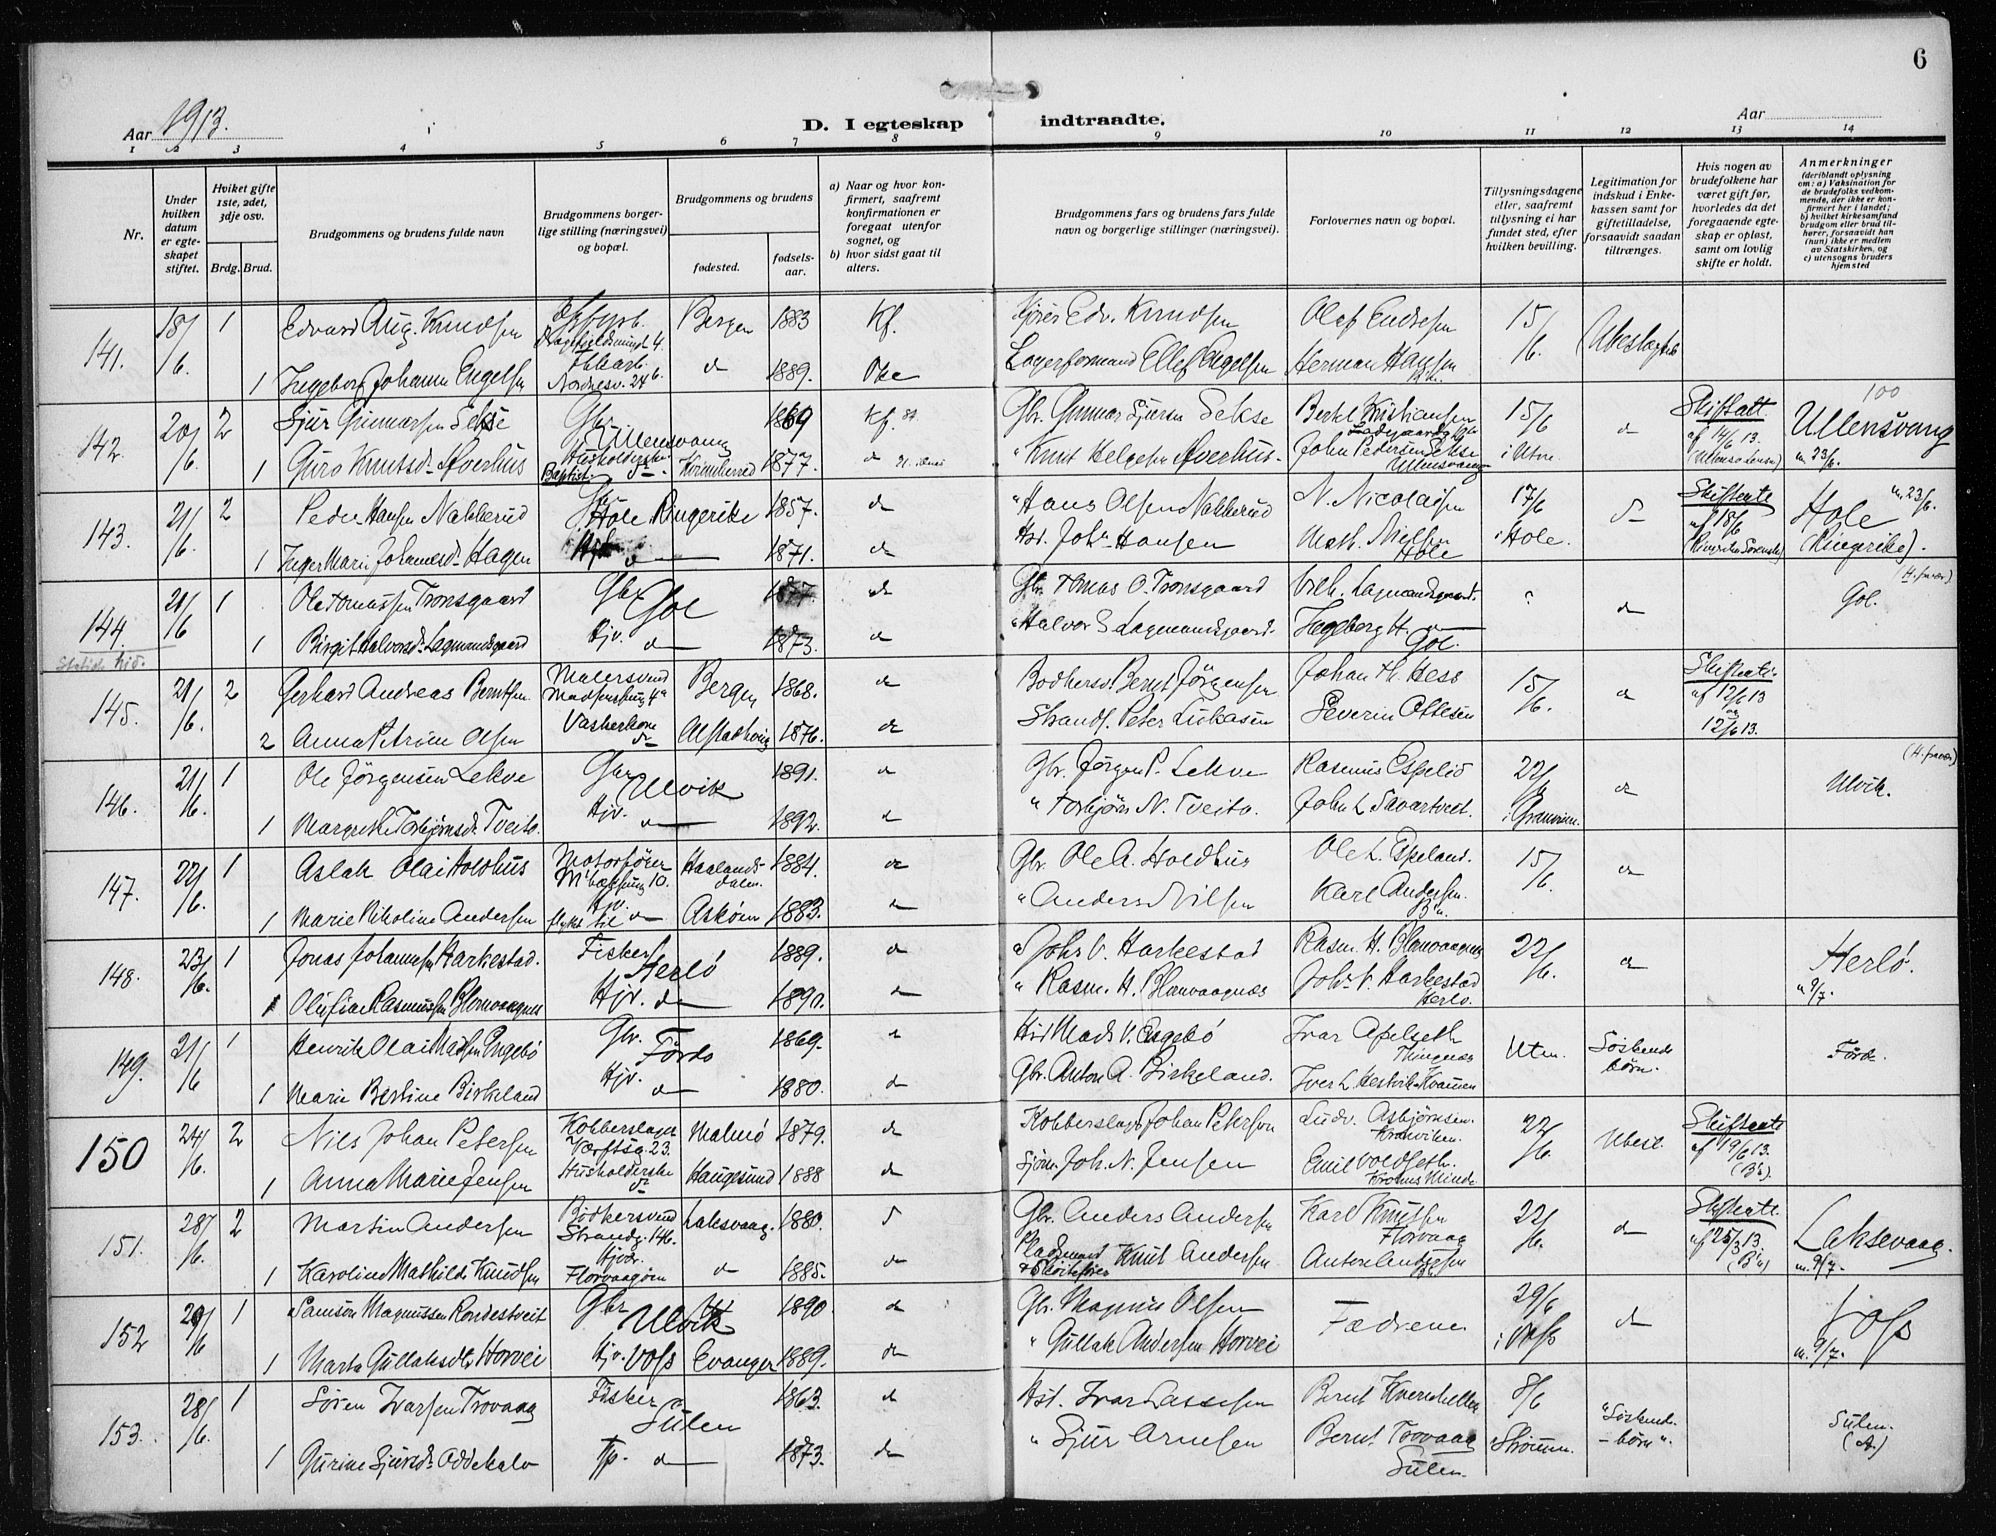 6
Aar 1913.
D. I egteskap indtraadte.
Aar
1 2 3 4 5 6 7 8 9 10 11 12 13 14
Nr.
Under hvilken datum er egteskapet stiftet.
Hviket gifte 1ste, 2det, 3dje osv.
Brdg. Brud.
Brudgommens og brudens fulde navn
Brudgommens borgerlige stilling (næringsvei) og bopæl.
Brudgommens og brudens
fødested.
fødselsaar.
a) Naar og hvor konfirmert, saafremt konfirmationen er foregaat utenfor sognet, og
b) hvor sidst gaat til alters.
Brudgommens fars og brudens fars fulde navn og borgerlige stillinger (næringsvei).
Forlovernes navn og bopæl.
Tillysningsdagene eller, saafremt tillysning ei har fundet sted, efter hvilken bevilling.
Legitimation for indskud i Enkekassen samt for giftetilladelse, forsaavidt saadan tiltrænges.
Hvis nogen av brudefolkene har været gift før, hvorledes da det foregaaende egteskap er opløst, samt om lovlig skifte er holdt.
Anmerkninger (deriblandt oplysning om: a) Vaksination for de brudefolks vedkommende, der ikke er konfirmert her i landet; b) hvilket kirkesamfund brudgom eller brud tilhører, forsaavidt han (hun) ikke er medlem av Statskirken, og c) utensogns bruders hjemsted
141. 18/6. 1 Edvard Aug. Knudsen Bergen 1883 Kf. Edv. Knudsen Olaf Endresen 15/6.
1 Ingeborg Johanne Engelsen Nordnesv. 24 b. d 1889. Lagerformand Ellef Engelsen Herman Hansen
142. 20/6. 2 Sjur Gunnarsen Sekse Gbr. Ullensvang 1869 Kf. Gbr. Gunnar Sjursen Sekse Berht. Kristiansen 15/6 i Utne d Skifteatt. af 14/6 13. 100 Ullensvang m. 23/6.
1 Guro Knutsd. Hverhus Baptist. Kvinnherred 1877. d " Knut Helgesen Hverhus. John Pedersen Sekse Ullensvang
143. 21/6. 2 Peder Hansen Nakkerud Hole Ringerike 1857. d " Hans Olsen Nakkerud N. Nicolaisen 17/6 i Hole. d Skifteatt. af 18/6 m. 23/6. Hole (Ringerike).
1 Inger Marie Johannesd. Hagen d 1871. d Joh. Hansen Math. Nielsen Hole
144. 21/6 1 Ole Tomassen Tronsgaard Gbr. Gol 1877. d Gbr. Tomas O. Tronsgaard Vilh. Lagmandsgaard. d Gol.
1 Birgit Halvorsd. Lagmandsgaard Hjv. d 1873. d " Halvor S. Lagmandsgaard. Hegeberg H. Gol.
145. 21/6. 2 Gerhard Andreas Berntsen Malersvend Bergen 1868. d Bødkersv. Bernt Jörgensen Johan Th. Hess 15/6. d Skifteatt. af 12/6 13 og 12/6 13.
2 Anna Petrine Olsen Vaskerkone 1876. d Strands. Peter Lukasen Severin Ottesen
146. 21/6. 1 Ole Jörgensen Lekve Gbr. Ulvik 1891. d Gbr. Jörgen P. Lekve Rasmus Espelid 22/6 i Granvin. d Ulvik.
1 Margrethe Torbjörnsd. Tveito. Hjv. d 1892. d " Torbjörn N. Tveito.
147. 22/6. 1 Aslak Olai Holdhus Motorfører Haalandsdalen. 1884. d Gbr. Ole A. Holdhus Ole L. Espeland. 15/6. d
1 Marie Nikoline Andersen Hjv. Askøen 1883. d " Anders Nilsen Karl Andersen
148. 23/6. 1 Jonas Johannesen Harkestad. Fisker Herlö 1889. d " Johs V. Harkestad Rasm. H. Blomvaagnes 22/6. d Herlö. m 9/7.
1 Olufine Rasmussen Blomvaagnes Hjv. d 1890. d " Rasm. H. Blomvaagnes Johs V. Harkestad Herlö.
149. 21/6 1 Henrik Olai Madsen Engebö Gbr. Förde 1869. d Mads V. Engebö Ivar Apelseth Uten. Söskendebörn. Förde.
1 Marie Bertine Birkeland Hjv. d 1880. d Gbr. Anton A. Birkeland. Iver L. Hestvik Kvammen
150 24/6. 2 Nils Johan Petersen Kobberslager Værftsg. 23. Malmö 1879. d Kobberslager Johan Petersson Ludv. Asbjörnsen. 22/6. Ubesl. Skifteatt. af 19/6 13.
1 Anna Marie Jensen Husholderske Haugesund 1888 d Sjöm. Joh. N. Jensen Emil Voldseth. Krohns Minde
151. 28/6. 2 Martin Andersen Bødkersvend Strandg. 146. Laksevaag. 1880. d Gbr. Anders Andersen Karl Knutsen Florvaag 22/6. d Skifteatt. af 25/3 13. Laksevaag. m. 9/7.
1 Karoline Mathilde Knudsen Florvaagöen d 1885. d Pladsmand Knut Andersen
152 29/6 1 Samson Magnussen Rondestveit Gbr Ulvik 1890 d Gbr. Magnus Olsen Fædrene 29/6 i Voss d Voss m. 9/7.
1 Marta Gullaksdtr Horvei Hjv. Voss Evanger 1889. d " Gullak Andersen Horvei
153. 28/6. 1 Sören Ivarsen Trovaag Fisker Sulen 1863. d Hst. Ivar Lassesen Bernt Kverhellen 8/6 "Söskendebörn". Sulen.
1 Gurine Sjursd. Oddekalv Tp. d 1873. d " Sjur Arnesen Bernt Trovaag Sulen.